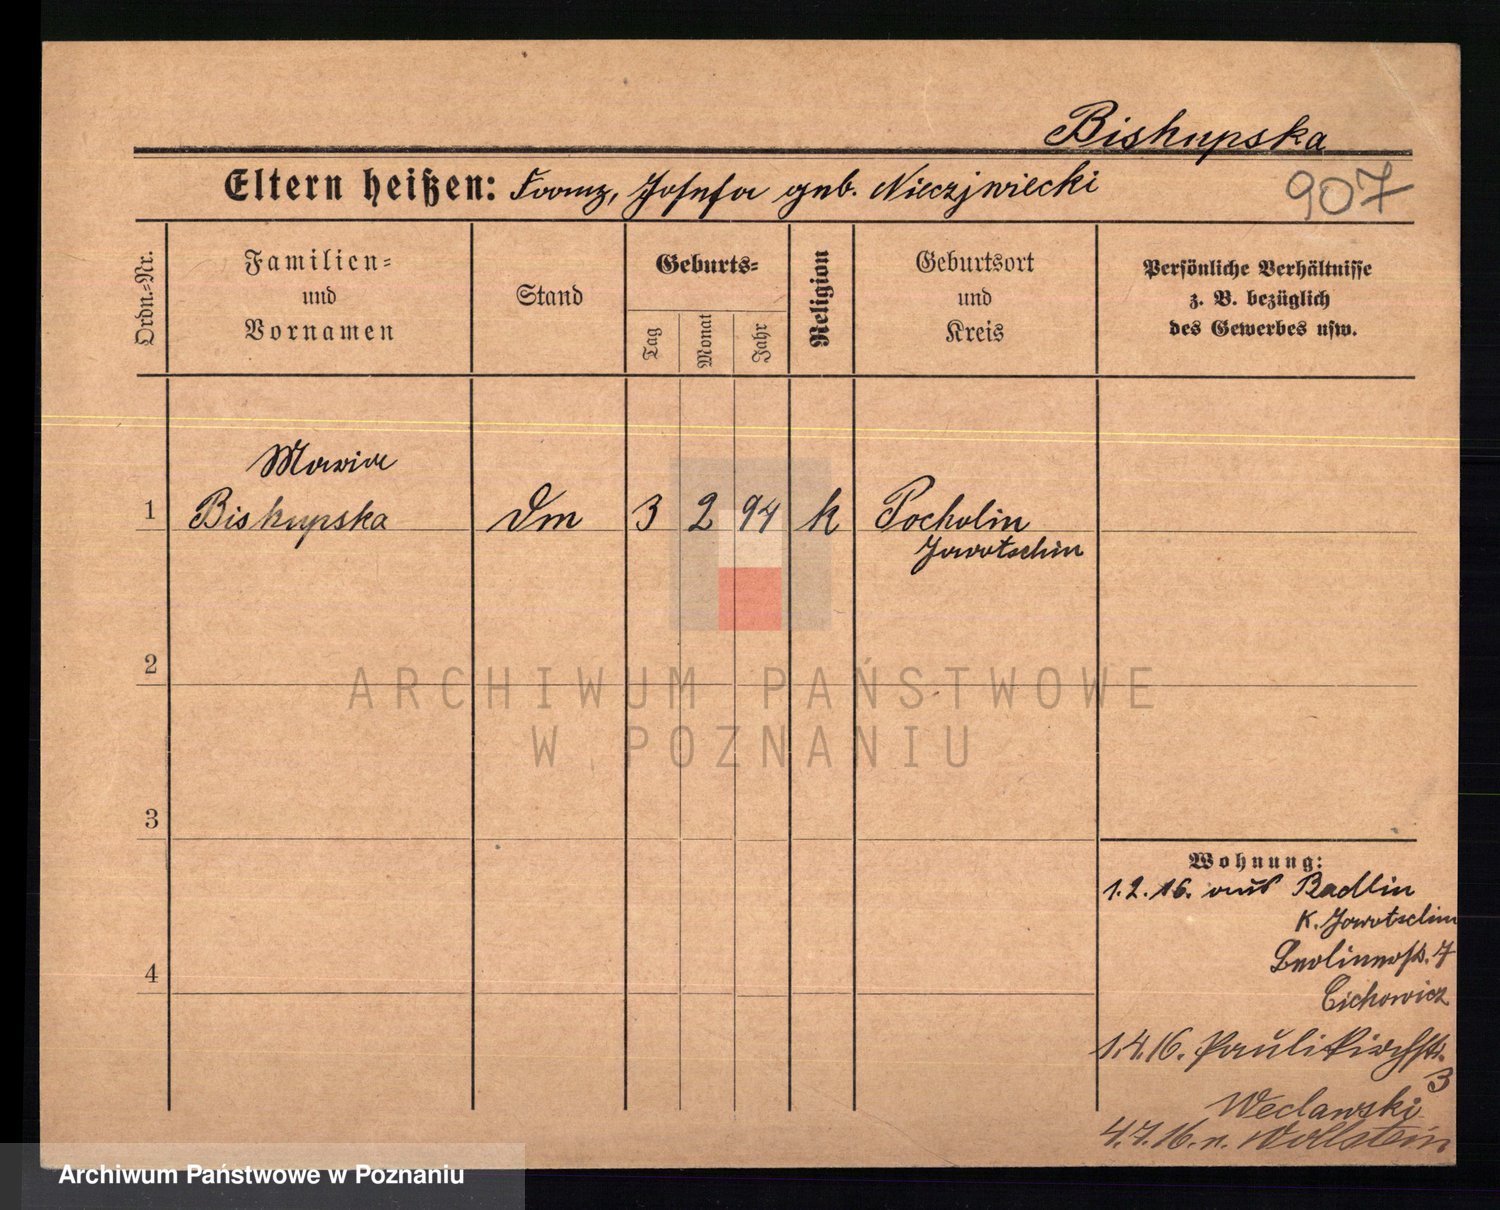 Bishupska
Eltern heißen: Franz, Josefa geb. Nieczjwiecki
907
Ordn.-Nr.
Familien-
und
Vornamen
Stand
Geburts-
Tag
Monat
Jahr
Religion
Geburtsort
und
Kreis
Persönliche Verhältnisse
z. B. bezüglich
des Gewerbes usw.
Maria
1 Biskupska Dm 3 2 94 k Pocholin
Jarotschin
2
3
4
Wohnung:
1.2.16. aus Radlin
K. Jarotschin
Berlinerstr. 7
Cichowicz
1.4.16. Paulikirchstr.
3
Weclawski
4.7.16. n. Wollstein
ARCHIWUM PAŃSTWOWE
W POZNANIU
Archiwum Państwowe w Poznaniu